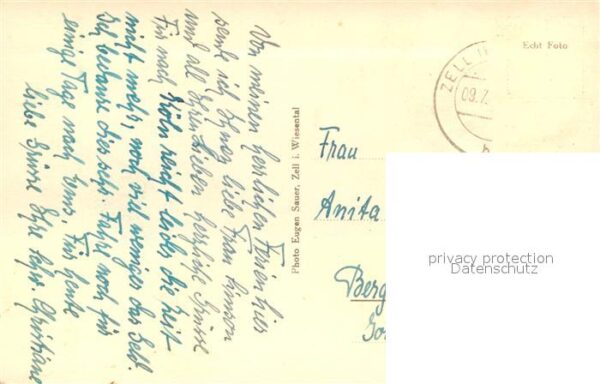 Von meinen herrlichen Ferien hier
sende ich Ihnen, liebe Frau Simson
und all Ihren Lieben herzliche Grüsse
Für nach Köln reicht leider die Zeit
nicht mehr, noch viel weniger das Geld.
Ich bedaure dies sehr. Fahre noch für
einige Tage nach Hause. Für heute
liebe Grüsse Ihre sehr. Christiane
Photo Eugen Sauer, Zell i. Wiesental
Echt Foto
ZELL
09.7.
Frau
Anita
Berg
privacy protection
Datenschutz